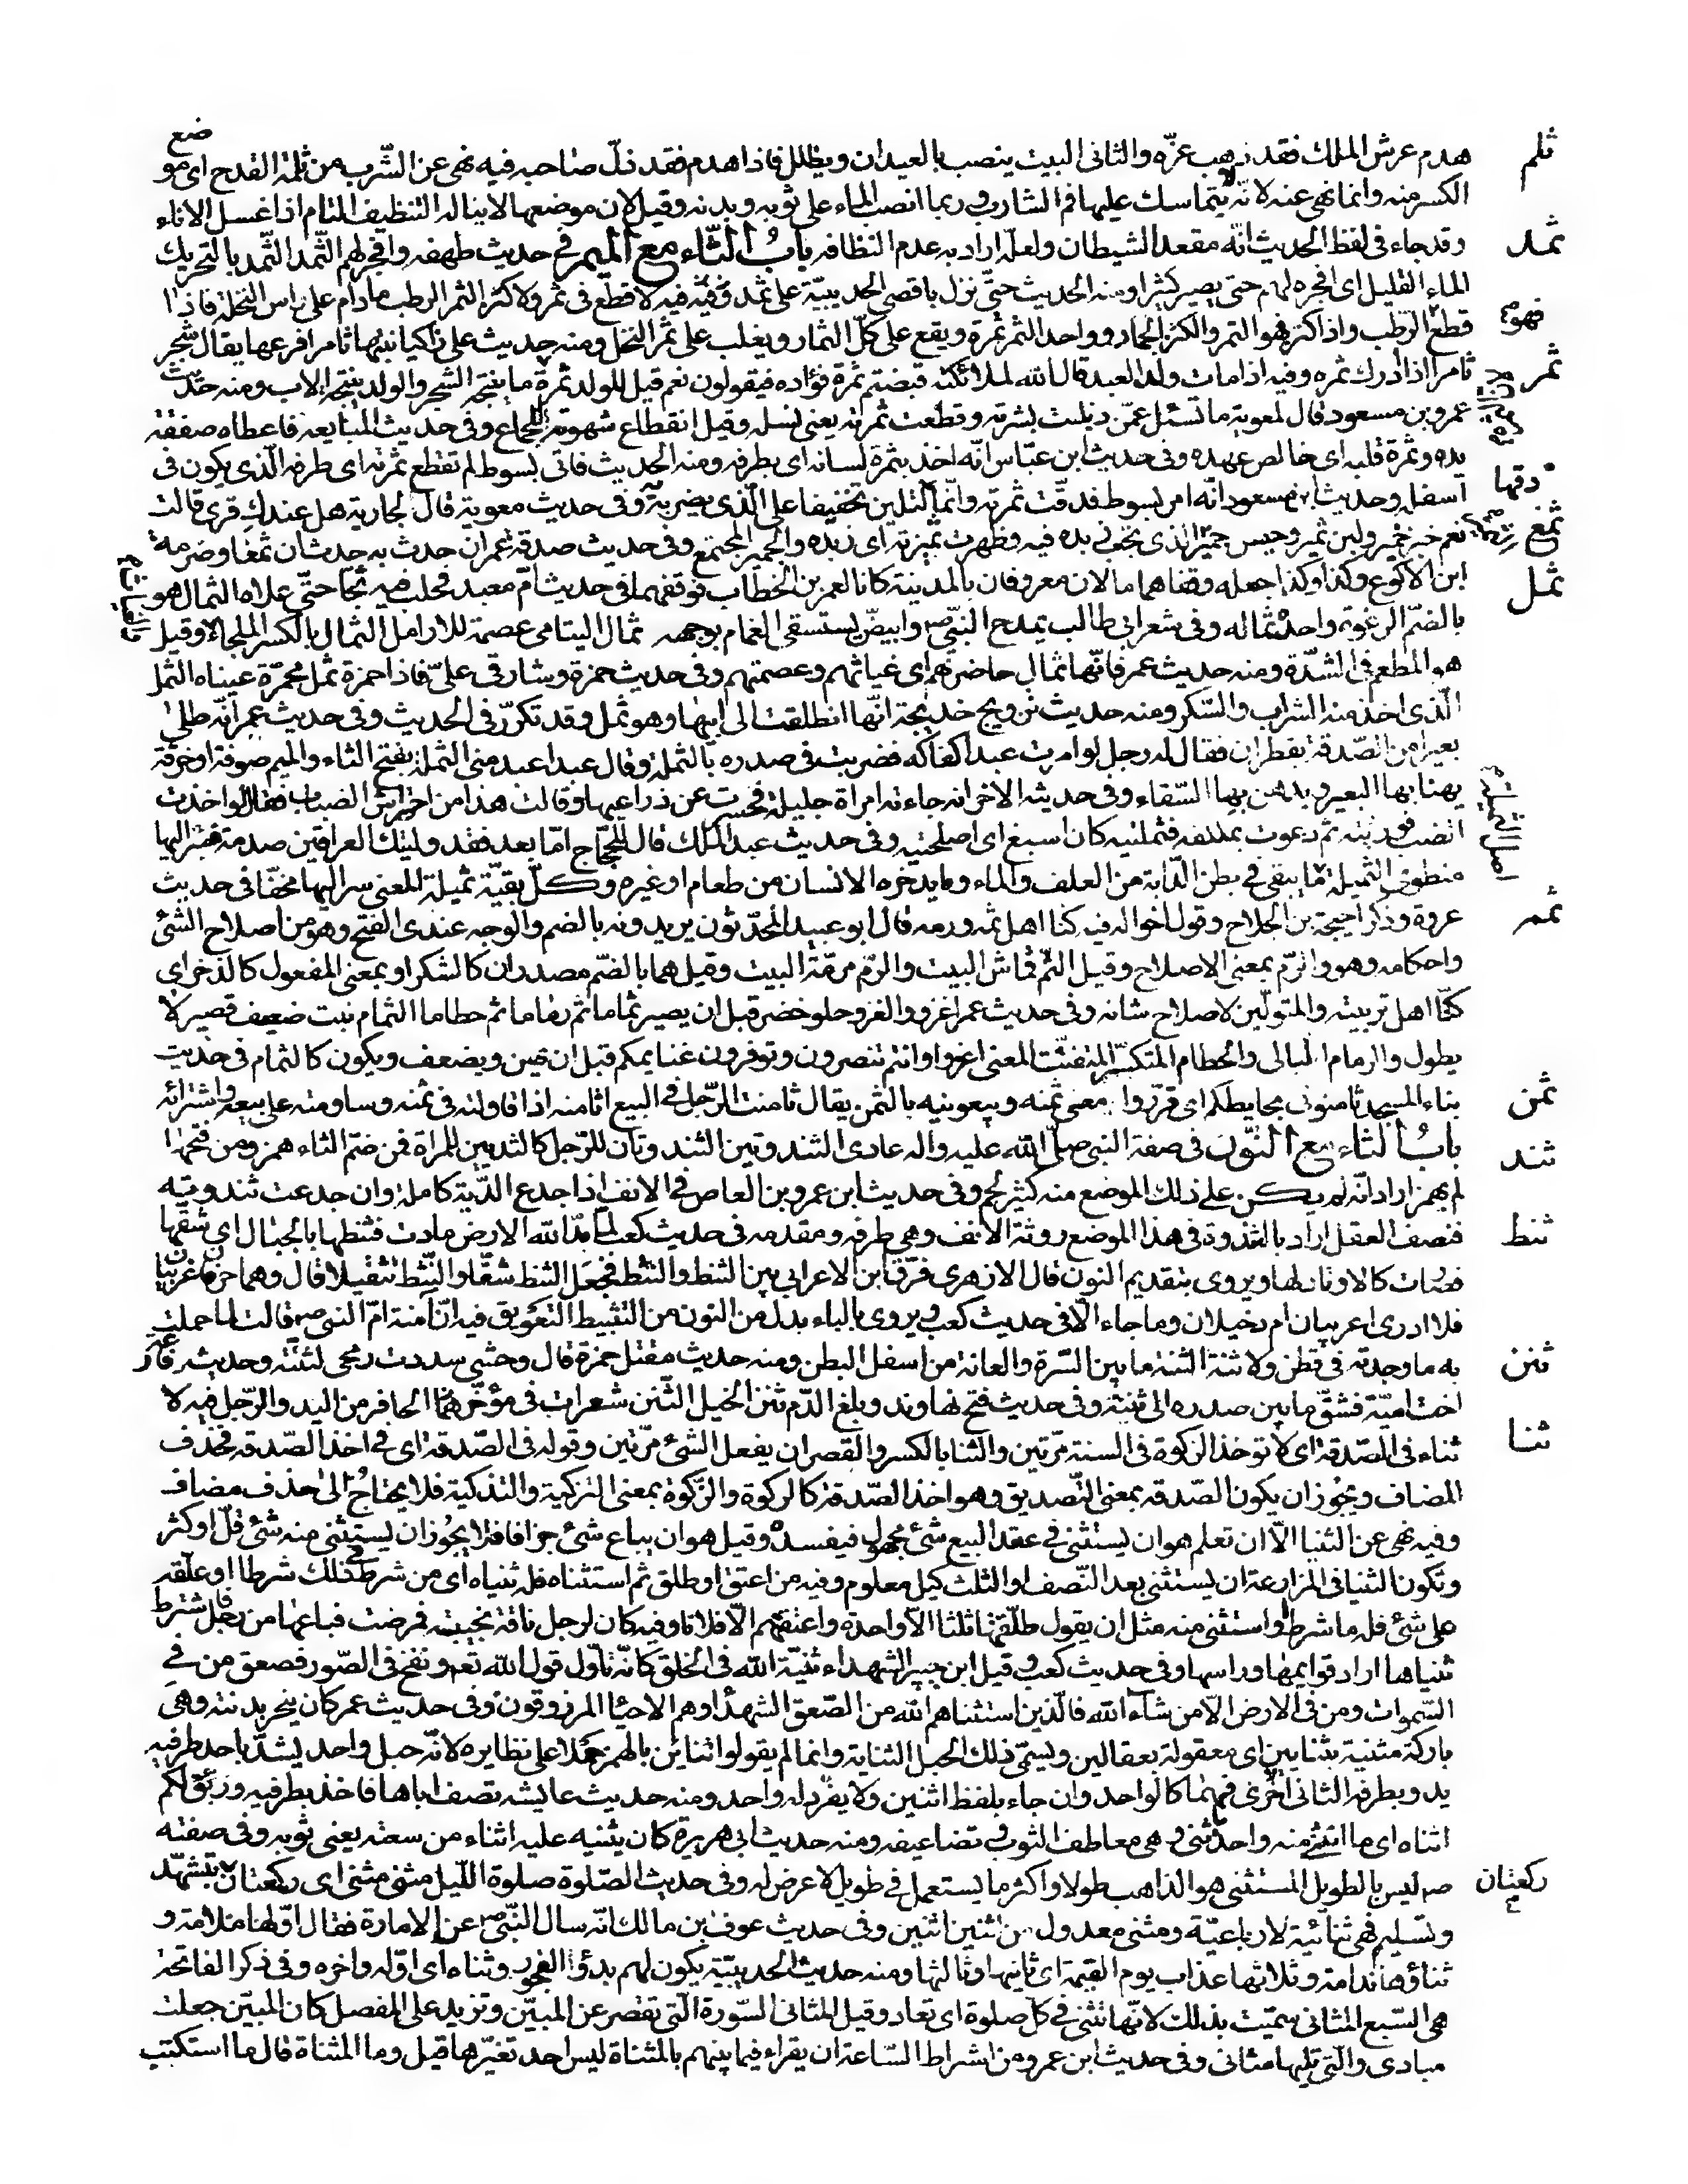 ضع
ثلم
هدم عرش الملك فقد ذهب عزّه والثانى البيت ينصب بالعيدان ويظلل فاذا هدم فقد ذلّ صاحبه فيه نهى عن الشّرب من ثلمة القدح اى مو
الكسر منه وانما نهى عنه لانّه لا يتماسك عليها فم الشارب وربما انصب الماء على ثوبه وبدنه وقيل لان موضعها لا يناله التنظيف التام اذا غسل الاناء
ثمد
وقد جاء فى لفظ الحديث انّه مقعد الشيطان ولعلّه اراد به عدم النظافه بابُ الثّاء مع الميم فى حديث طهفه وافجر لهم الثّمد الثّمد بالتحريك
الماء القليل اى افجره لهم حتى يصير كثيرا ومنه الحديث حتّى نزل باقصى الحديبيّة على ثمد وفيه لا قطع فى ثمر ولا كثر الثمر الرطب مادام على راس النخلة فاذا
فهو
قطع الرّطب واذا كنز فهو التمر والكثر الجمار وواحد الثمر ثمرة ويقع على كلّ الثمار ويغلب على ثمر النخل ومنه حديث على زاكيا نبتها ثامرا فرعها يقال شجر
ثمر
ثامر اذا ادرك ثمره وفيه اذا مات ولد العبد قال الله لملائكته قبضتم ثمرة فؤاده فيقولون نعم قيل للولد ثمرة ما ينتجه الشجر والولد ينتجه الاب ومنه حديث
عمرو بن مسعود قال لمعوية ما تسئل عمّن ذبلت بشرته وقطعت ثمرته يعنى نسله وقيل انقطاع شهوته للجماع وفى حديث المبايعه فاعطاه صفقة
يده وثمرة قلبه اى خالص عهده وفى حديث ابن عبّاس انّه اخذ بثمرة لسانه اى بطرفه ومنه الحديث فاتى بسوط لم تقطع ثمرته اى طرفه الّذى يكون فى
دقها
اسفله وحديث ابن مسعود انّه امر بسوط فدقّت ثمرته وانّما لتلين تخفيفا على الّذى يضرب به وفى حديث معوية قال لجارية هل عندك قرى قالت
ثمغ
نعم خبز خمير ولبن ثمير وحيس جمير الذى تحبب زبده فيه وظهرت ثميرته اى زبده والجمير المجتمع وفى حديث صدقة عمران حدث به حدث ان ثمغا وصرمة
ثمل
ابن الاكوع وكذا وكذا جعله وقفا هما مالان معروفان بالمدينة كانا لعمر بن الخطاب فوقفهما فى حديث امّ معبد فحلب فيه ثجّا حتّى علاه الثمال هو
بالضمّ الرغوة واحدة ثماله وفى شعر ابى طالب يمدح النبىّ ص وابيض يستسقى الغمام بوجهه ثمال اليتامى عصمة للارامل الثمال بالكسر الملجا وقيل
هو المطعم فى الشدّة ومنه حديث عمر فانّها ثمال حاضرهم اى غياثهم وعصمتهم وفى حديث حمزة وشارفى علىّ فاذا حمزة ثمل محمّرة عيناه الثمل
الّذى اخذ منه الشراب والسّكر ومنه حديث تزويج خديجة انّها انطلقت الى ابيها وهو ثمل وقد تكرّر فى الحديث وفى حديث عمر انّه طلى
بعيرا من الصّدقة بقطران فقال له رجل لو امرت عبدا كفاكه فضربت فى صدره بالثملة وقال عبد اعبد منى الثملة بفتح الثاء والميم صوفة اوخرقة
يهنا بها البعير ويدهن بها السّقاء وفى حديثه الاخر انه جاءته امراة جليلة فحسرت عن ذراعيها وقالت هذا من احتراش الضباب فقال لو اخذت
اصل الثميلة
الضب فوريته ثم دعوت بمنكفه فثملتيه كان اسبغ اى اصلحتيه وفى حديث عبد الملك قال للحجّاج امّا بعد فقد وليتك العراقين صدمة فسر اليها
منطوى الثميلة ما يبقى فى بطن الدّابة من العلف والماء وما يدخره الانسان من طعام اوغيره وكلّ بقيّة ثميلة المعنى سر اليها مخفّا فى حديث
ثمم
عروة وذكر احيحة بن الجلاح وقول اخواله فيه كنا اهل ثمه ورمه قال ابو عبيد المحدّثون يريدونه بالضم والوجه عندى الفتح وهو من اصلاح الشئ
واحكامه وهو والرّم بمعنى الاصلاح وقيل الثم قماش البيت والرّم مرمّة البيت وقيل هما بالضّم مصدران كالشكر او بمعنى المفعول كالذخر اى
كنّا اهل تربيته والمتولّين لاصلاح شانه وفى حديث عمر اغزوا والغزو حلو خضر قبل ان يصير ثماما ثم رماما ثم حطاما الثمام نبت ضعيف قصير لا
يطول والرمام البالى والحطام المتكسّر المتفتّت المعنى اغزوا وانتم تنصرون وتوفرون غنايمكم قبل ان يهن ويضعف ويكون كالثمام فى حديث
ثمن
بناء المسجد ثامنونى بحايطكم اى قرّروا معى ثمنه وبيعونيه بالثمن يقال ثامنت الرّجل فى البيع اثامنه اذا قاولته فى ثمنه وساومته على بيعه واشترائه
ثند
بابُ الثاء مع النّون فى صفة النبى صلّى الله عليه واله عارى الثندوتين الثندوتان للرّجل كالثديين للمراة فمن ضمّ الثاء همز ومن فتحها
لم يهمز اراد انّه لم يكن على ذلك الموضع منه كثير لحم وفى حديث ابن عمرو بن العاص فى الانف اذا جدع الدّية كاملة وان جدعت ثندوته
ثنط
فنصف العقل اراد بالثندوة فى هذا الموضع روثة الانف وهى طرفه ومقدمه فى حديث كعب لمّا مدّ الله الارض مادت فثنطها بالجبال اى شقّها
فصارت كالاوتاد لها ويروى بتقديم النون قال الازهرى فرّق ابن الاعرابى بين الثنط والنثط فجعل الثنط شقّا والنّثط تثقيلا قال وهما حرفان غريبان
فلا ادرى اعربيان ام دخيلان وما جاء الّا فى حديث كعب ويروى بالباء بدل من النون من التثبيط التعويق فيه انّ آمنة امّ النبى ص قالت لما حملت
ثنن
به ما وجدته فى قطن ولا ثنة الثنة ما بين السّرة والعانة من اسفل البطن ومنه حديث مقتل حمزة قال وحشى سددت رمحى لثنّته وحديث فارعة
اخت اميّة فشقّ ما بين صدره الى ثنته وفى حديث فتح نهاوند وبلغ الدّم ثنن الخيل الثّنن شعرات فى مؤخّر الحافر من اليد والرّجل فيه لا
ثنا
ثناء فى الصّدقة اى لا توخذ الزكوة فى السنة مرّتين والثنا بالكسر والقصر ان يفعل الشئ مرّتين وقوله فى الصّدقة اى فى اخذ الصّدقه فحذف
المضاف ويجوز ان يكون الصّدقه بمعنى التّصديق وهو اخذ الصّدقة كالزكوة والزّكوة بمعنى التزكية والتذكية فلا يحتاج الى حذف مضاف
وفيه نهى عن الثنيا الّا ان تعلم هو ان يستثنى فى عقد البيع شئ مجهول فيفسده وقيل هو ان يباع شئ جزافا فلا يجوز ان يستثنى منه شئ قلّ او كثر
وتكون الثنيا فى المزارعة ان يستثنى بعد النّصف او الثلث كيل معلوم وفيه من اعتق او طلق ثم استثناه فله ثنياه اى من شرط فى ذلك شرطا او علّقه
على شئ فله ما شرط او استثنى منه مثل ان يقول طلّقتها ثلثا الّا واحدة واعتقتهم الّا فلانا وفيه كان لرجل ناقة نجيبة فمرضت فباعها من رجل اشترط
ثنياها اراد قوايمها وراسها وفى حديث كعب وقيل ابن جبير الشهداء ثنيّة الله فى الخلق كانّه تاوّل قول الله تعم ونفخ فى الصّور فصعق من فى
السّموات ومن فى الارض الّا من شاء الله فالّذين استثناهم الله من الصّعق الشهدا وهم الاحيا المرزوقون وفى حديث عمر كان ينحر بدنته وهى
باركة مثنية بثنايين اى معقولة بعقالين ويسمّى ذلك الحبل الثناية وانما لم يقولوا ثنائين بالهمز حملا على نظايره لانّه حبل واحد يشدّ باحد طرفيه
يد وبطرفه الثانى اخرى فهما كالواحد وان جاء بلفظ اثنين ولا يفرد له واحد ومنه حديث عايشه تصف اباها فاخذ بطرفيه وربّق لكم
اثناه اى ما انثنى منه واحد ثنى وهى معاطف الثوب وتضاعيفه ومنه حديث ابى هريرة كان يثنيه عليه اثناء من سعته يعنى ثوبه وفى صفته
ركعتان
ص ليس بالطويل المتثنى هو الذاهب طولا واكثر ما يستعمل فى طويل لا عرض له وفى حديث الصّلوة صلوة اللّيل مثنى مثنى اى ركعتان بتشهّد
وتسليم فهى ثنائية لا رباعيّة ومثنى معدول من اثنين اثنين وفى حديث عوف بن مالك انّه سال النّبىّ ص عن الامارة فقال اوّلها ملامة و
ثناؤها ندامة وثلاثها عذاب يوم القيمة اى ثانيها وثالثها ومنه حديث الحديبيّة يكون لهم بدؤ الفجور وثناه اى اوّله واخره وفى ذكر الفاتحة
هى السّبع المثانى سمّيت بذلك لانّها تثنى فى كلّ صلوة اى تعاد وقيل المثانى السّورة الّتى تقصر عن المبيّن وتزيد على المفصل كان المبيّن جعلت
مبادى والّتى تليها مثانى وفى حديث ابن عمرو من اشراط السّاعة ان يقراء فيما بينهم بالمثناة ليس احد تغيّرها قيل وما المثناة قال ما استكتب